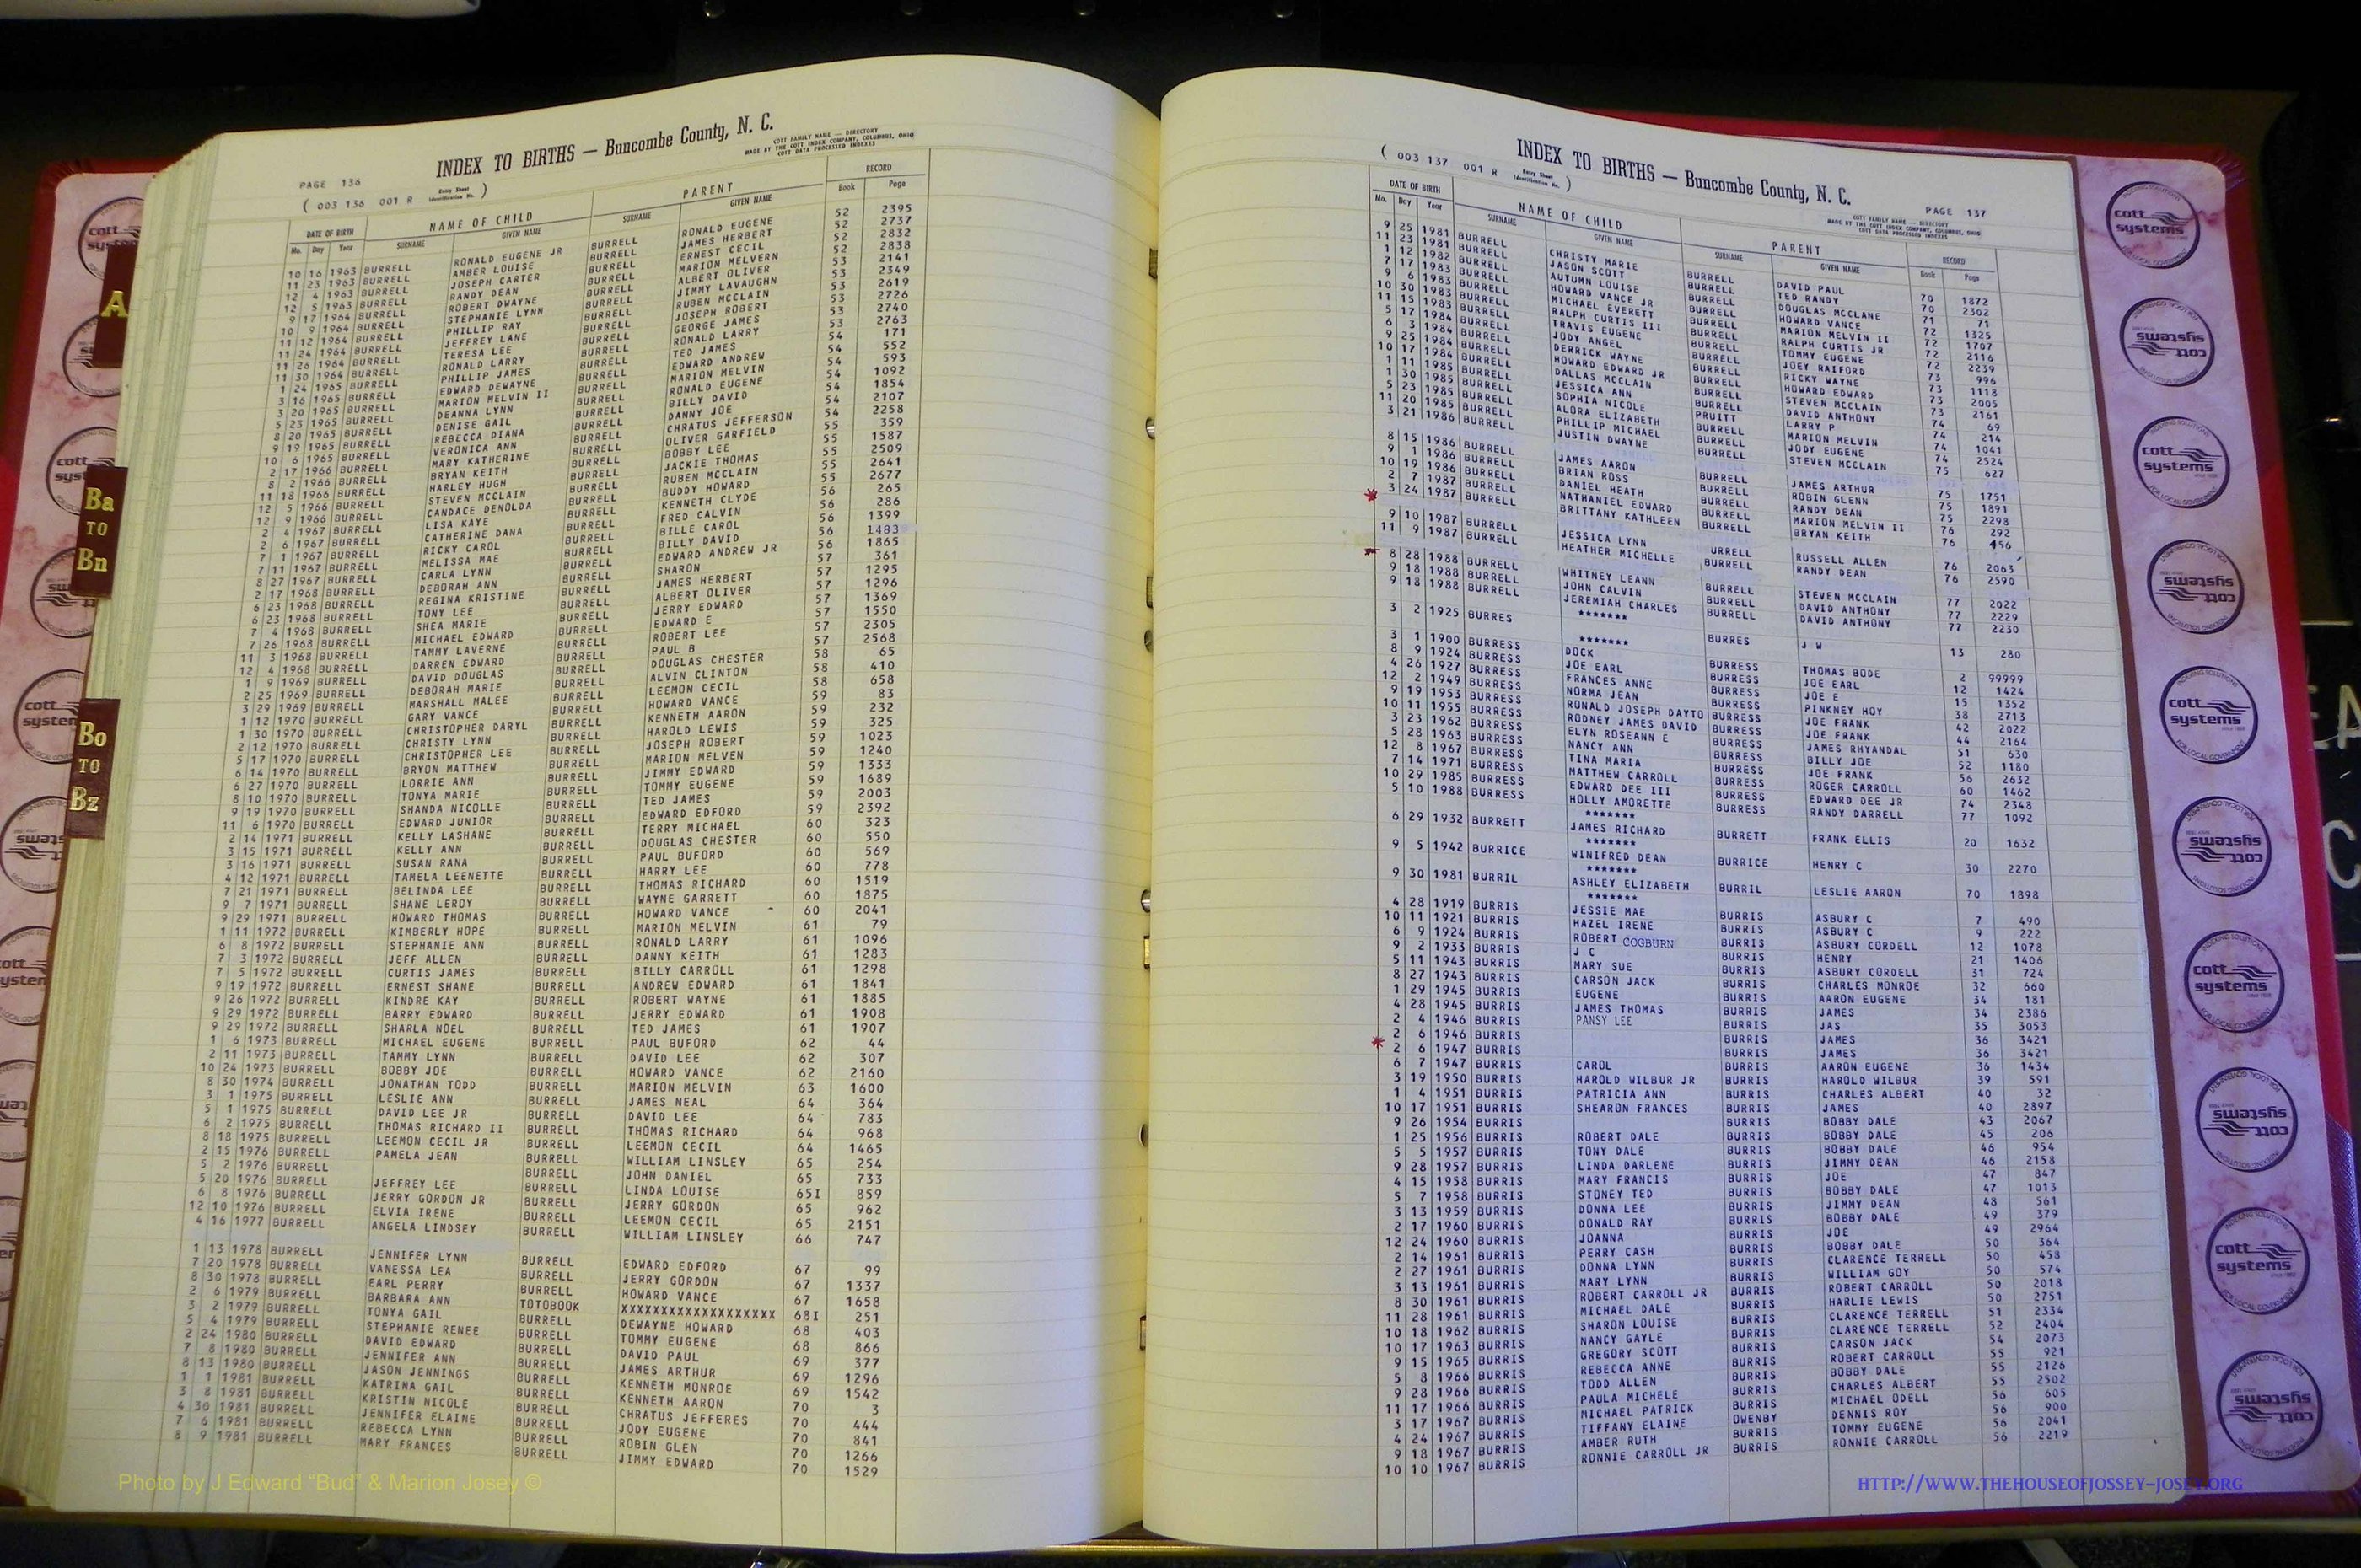 INDEX TO BIRTHS — Buncombe County, N. C.
COTT FAMILY NAME — DIRECTORY
MADE BY THE COTT INDEX COMPANY, COLUMBUS, OHIO
COTT DATA PROCESSED INDEXES
PAGE 136
( 003 136 001 R Entry Sheet Identification No. )
DATE OF BIRTH NAME OF CHILD PARENT RECORD
Mo. Day Year SURNAME GIVEN NAME SURNAME GIVEN NAME Book Page
10 16 1963 BURRELL RONALD EUGENE JR BURRELL RONALD EUGENE 52 2395
11 23 1963 BURRELL AMBER LOUISE BURRELL JAMES HERBERT 52 2737
12 4 1963 BURRELL JOSEPH CARTER BURRELL ERNEST CECIL 52 2832
12 5 1963 BURRELL RANDY DEAN BURRELL MARION MELVERN 52 2838
9 17 1964 BURRELL ROBERT DWAYNE BURRELL ALBERT OLIVER 53 2141
10 9 1964 BURRELL STEPHANIE LYNN BURRELL JIMMY LAVAUGHN 53 2349
11 12 1964 BURRELL PHILLIP RAY BURRELL RUBEN MCCLAIN 53 2619
11 24 1964 BURRELL JEFFREY LANE BURRELL JOSEPH ROBERT 53 2726
11 26 1964 BURRELL TERESA LEE BURRELL GEORGE JAMES 53 2740
11 30 1964 BURRELL RONALD LARRY BURRELL RONALD LARRY 53 2763
1 24 1965 BURRELL PHILLIP JAMES BURRELL TED JAMES 54 171
3 16 1965 BURRELL EDWARD DEWAYNE BURRELL EDWARD ANDREW 54 552
3 20 1965 BURRELL MARION MELVIN II BURRELL MARION MELVIN 54 593
5 23 1965 BURRELL DEANNA LYNN BURRELL RONALD EUGENE 54 1092
8 20 1965 BURRELL DENISE GAIL BURRELL BILLY DAVID 54 1854
9 19 1965 BURRELL REBECCA DIANA BURRELL DANNY JOE 54 2107
10 6 1965 BURRELL VERONICA ANN BURRELL CHRATUS JEFFERSON 54 2258
2 17 1966 BURRELL MARY KATHERINE BURRELL OLIVER GARFIELD 55 359
8 2 1966 BURRELL BRYAN KEITH BURRELL BOBBY LEE 55 1587
11 18 1966 BURRELL HARLEY HUGH BURRELL JACKIE THOMAS 55 2509
12 5 1966 BURRELL STEVEN MCCLAIN BURRELL RUBEN MCCLAIN 55 2641
12 9 1966 BURRELL CANDACE DENOLDA BURRELL BUDDY HOWARD 55 2677
2 4 1967 BURRELL LISA KAYE BURRELL KENNETH CLYDE 56 265
2 6 1967 BURRELL CATHERINE DANA BURRELL FRED CALVIN 56 286
7 1 1967 BURRELL RICKY CAROL BURRELL BILLE CAROL 56 1399
7 11 1967 BURRELL MELISSA MAE BURRELL BILLY DAVID 56 1483
8 27 1967 BURRELL CARLA LYNN BURRELL EDWARD ANDREW JR 56 1865
2 17 1968 BURRELL DEBORAH ANN BURRELL SHARON 57 361
6 23 1968 BURRELL REGINA KRISTINE BURRELL JAMES HERBERT 57 1295
6 23 1968 BURRELL TONY LEE BURRELL ALBERT OLIVER 57 1296
7 4 1968 BURRELL SHEA MARIE BURRELL JERRY EDWARD 57 1369
7 26 1968 BURRELL MICHAEL EDWARD BURRELL EDWARD E 57 1550
11 3 1968 BURRELL TAMMY LAVERNE BURRELL ROBERT LEE 57 2305
12 4 1968 BURRELL DARREN EDWARD BURRELL PAUL B 57 2568
1 9 1969 BURRELL DAVID DOUGLAS BURRELL DOUGLAS CHESTER 58 65
2 25 1969 BURRELL DEBORAH MARIE BURRELL ALVIN CLINTON 58 410
3 29 1969 BURRELL MARSHALL MALEE BURRELL LEEMON CECIL 58 658
1 12 1970 BURRELL GARY VANCE BURRELL HOWARD VANCE 59 83
1 30 1970 BURRELL CHRISTOPHER DARYL BURRELL KENNETH AARON 59 232
2 12 1970 BURRELL CHRISTY LYNN BURRELL HAROLD LEWIS 59 325
5 17 1970 BURRELL CHRISTOPHER LEE BURRELL JOSEPH ROBERT 59 1023
6 14 1970 BURRELL BRYON MATTHEW BURRELL MARION MELVEN 59 1240
6 27 1970 BURRELL LORRIE ANN BURRELL JIMMY EDWARD 59 1333
8 10 1970 BURRELL TONYA MARIE BURRELL TOMMY EUGENE 59 1689
9 19 1970 BURRELL SHANDA NICOLLE BURRELL TED JAMES 59 2003
11 6 1970 BURRELL EDWARD JUNIOR BURRELL EDWARD EDFORD 59 2392
2 14 1971 BURRELL KELLY LASHANE BURRELL TERRY MICHAEL 60 323
3 15 1971 BURRELL KELLY ANN BURRELL DOUGLAS CHESTER 60 550
3 16 1971 BURRELL SUSAN RANA BURRELL PAUL BUFORD 60 569
4 12 1971 BURRELL TAMELA LEENETTE BURRELL HARRY LEE 60 778
7 21 1971 BURRELL BELINDA LEE BURRELL THOMAS RICHARD 60 1519
9 7 1971 BURRELL SHANE LEROY BURRELL WAYNE GARRETT 60 1875
9 29 1971 BURRELL HOWARD THOMAS BURRELL HOWARD VANCE 60 2041
1 11 1972 BURRELL KIMBERLY HOPE BURRELL MARION MELVIN 61 79
6 8 1972 BURRELL STEPHANIE ANN BURRELL RONALD LARRY 61 1096
7 3 1972 BURRELL JEFF ALLEN BURRELL DANNY KEITH 61 1283
7 5 1972 BURRELL CURTIS JAMES BURRELL BILLY CARROLL 61 1298
9 19 1972 BURRELL ERNEST SHANE BURRELL ANDREW EDWARD 61 1841
9 26 1972 BURRELL KINDRE KAY BURRELL ROBERT WAYNE 61 1885
9 29 1972 BURRELL BARRY EDWARD BURRELL JERRY EDWARD 61 1908
9 29 1972 BURRELL SHARLA NOEL BURRELL TED JAMES 61 1907
1 6 1973 BURRELL MICHAEL EUGENE BURRELL PAUL BUFORD 62 44
2 11 1973 BURRELL TAMMY LYNN BURRELL DAVID LEE 62 307
10 24 1973 BURRELL BOBBY JOE BURRELL HOWARD VANCE 62 2160
8 30 1974 BURRELL JONATHAN TODD BURRELL MARION MELVIN 63 1600
3 1 1975 BURRELL LESLIE ANN BURRELL JAMES NEAL 64 364
5 1 1975 BURRELL DAVID LEE JR BURRELL DAVID LEE 64 783
6 2 1975 BURRELL THOMAS RICHARD II BURRELL THOMAS RICHARD 64 968
8 18 1975 BURRELL LEEMON CECIL JR BURRELL LEEMON CECIL 64 1465
2 15 1976 BURRELL PAMELA JEAN BURRELL WILLIAM LINSLEY 65 254
5 2 1976 BURRELL BURRELL JOHN DANIEL 65 733
5 20 1976 BURRELL JEFFREY LEE BURRELL LINDA LOUISE 65I 859
6 8 1976 BURRELL JERRY GORDON JR BURRELL JERRY GORDON 65 962
12 10 1976 BURRELL ELVIA IRENE BURRELL LEEMON CECIL 65 2151
4 16 1977 BURRELL ANGELA LINDSEY BURRELL WILLIAM LINSLEY 66 747
1 13 1978 BURRELL JENNIFER LYNN BURRELL EDWARD EDFORD 67 99
7 20 1978 BURRELL VANESSA LEA BURRELL JERRY GORDON 67 1337
8 30 1978 BURRELL EARL PERRY BURRELL HOWARD VANCE 67 1658
2 6 1979 BURRELL BARBARA ANN TOTOBOOK XXXXXXXXXXXXXXXXXXX 68I 251
3 2 1979 BURRELL TONYA GAIL BURRELL DEWAYNE HOWARD 68 403
5 4 1979 BURRELL STEPHANIE RENEE BURRELL TOMMY EUGENE 68 866
2 24 1980 BURRELL DAVID EDWARD BURRELL DAVID PAUL 69 377
7 8 1980 BURRELL JENNIFER ANN BURRELL JAMES ARTHUR 69 1296
8 13 1980 BURRELL JASON JENNINGS BURRELL KENNETH MONROE 69 1542
1 1 1981 BURRELL KATRINA GAIL BURRELL KENNETH AARON 70 3
3 8 1981 BURRELL KRISTIN NICOLE BURRELL CHRATUS JEFFERES 70 444
4 30 1981 BURRELL JENNIFER ELAINE BURRELL JODY EUGENE 70 841
7 6 1981 BURRELL REBECCA LYNN BURRELL ROBIN GLEN 70 1266
8 9 1981 BURRELL MARY FRANCES BURRELL JIMMY EDWARD 70 1529
INDEX TO BIRTHS — Buncombe County, N. C.
( 003 137 001 R Entry Sheet Identification No. )
PAGE 137
COTT FAMILY NAME — DIRECTORY
MADE BY THE COTT INDEX COMPANY, COLUMBUS, OHIO
COTT DATA PROCESSED INDEXES
DATE OF BIRTH NAME OF CHILD PARENT RECORD
Mo. Day Year SURNAME GIVEN NAME SURNAME GIVEN NAME Book Page
9 25 1981 BURRELL CHRISTY MARIE BURRELL DAVID PAUL 70 1872
11 23 1981 BURRELL JASON SCOTT BURRELL TED RANDY 70 2302
1 12 1982 BURRELL AUTUMN LOUISE BURRELL DOUGLAS MCCLANE 71 71
7 17 1983 BURRELL HOWARD VANCE JR BURRELL HOWARD VANCE 72 1325
9 6 1983 BURRELL MICHAEL EVERETT BURRELL MARION MELVIN II 72 1707
10 30 1983 BURRELL RALPH CURTIS III BURRELL RALPH CURTIS JR 72 2116
11 15 1983 BURRELL TRAVIS EUGENE BURRELL TOMMY EUGENE 72 2239
5 17 1984 BURRELL JODY ANGEL BURRELL JOEY RAIFORD 73 996
6 3 1984 BURRELL DERRICK WAYNE BURRELL RICKY WAYNE 73 1118
9 25 1984 BURRELL HOWARD EDWARD JR BURRELL HOWARD EDWARD 73 2005
10 17 1984 BURRELL DALLAS MCCLAIN BURRELL STEVEN MCCLAIN 73 2161
1 11 1985 BURRELL JESSICA ANN BURRELL DAVID ANTHONY 74 69
1 30 1985 BURRELL SOPHIA NICOLE PRUITT LARRY P 74 214
5 23 1985 BURRELL ALORA ELIZABETH BURRELL MARION MELVIN 74 1041
11 20 1985 BURRELL PHILLIP MICHAEL BURRELL JODY EUGENE 74 2524
3 21 1986 BURRELL JUSTIN DWAYNE BURRELL STEVEN MCCLAIN 75 627
8 15 1986 BURRELL JAMES AARON BURRELL JAMES ARTHUR 75 1751
9 1 1986 BURRELL BRIAN ROSS BURRELL ROBIN GLENN 75 1891
10 19 1986 BURRELL DANIEL HEATH BURRELL RANDY DEAN 75 2298
2 7 1987 BURRELL NATHANIEL EDWARD BURRELL MARION MELVIN II 76 292
* 3 24 1987 BURRELL BRITTANY KATHLEEN BURRELL BRYAN KEITH 76 456
9 10 1987 BURRELL JESSICA LYNN URRELL RUSSELL ALLEN 76 2063
11 9 1987 BURRELL HEATHER MICHELLE BURRELL RANDY DEAN 76 2590
8 28 1988 BURRELL WHITNEY LEANN BURRELL STEVEN MCCLAIN 77 2022
9 18 1988 BURRELL JOHN CALVIN BURRELL DAVID ANTHONY 77 2229
9 18 1988 BURRELL JEREMIAH CHARLES BURRELL DAVID ANTHONY 77 2230
3 2 1925 BURRES ******* BURRES J W 13 280
3 1 1900 BURRESS ******* BURRESS THOMAS BODE 2 99999
8 9 1924 BURRESS DOCK BURRESS JOE EARL 12 1424
4 26 1927 BURRESS JOE EARL BURRESS JOE E 15 1352
12 2 1949 BURRESS FRANCES ANNE BURRESS PINKNEY HOY 38 2713
9 19 1953 BURRESS NORMA JEAN BURRESS JOE FRANK 42 2022
10 11 1955 BURRESS RONALD JOSEPH DAYTO BURRESS JOE FRANK 44 2164
3 23 1962 BURRESS RODNEY JAMES DAVID BURRESS JAMES RHYANDAL 51 630
5 28 1963 BURRESS ELYN ROSEANN E BURRESS BILLY JOE 52 1180
12 8 1967 BURRESS NANCY ANN BURRESS JOE FRANK 56 2632
7 14 1971 BURRESS TINA MARIA BURRESS ROGER CARROLL 60 1462
10 29 1985 BURRESS MATTHEW CARROLL EDWARD DEE III BURRESS EDWARD DEE JR 74 2348
5 10 1988 BURRESS HOLLY AMORETTE BURRESS RANDY DARRELL 77 1092
*******
6 29 1932 BURRETT JAMES RICHARD BURRETT FRANK ELLIS 20 1632
*******
9 5 1942 BURRICE WINIFRED DEAN BURRICE HENRY C 30 2270
*******
9 30 1981 BURRIL ASHLEY ELIZABETH BURRIL LESLIE AARON 70 1898
*******
4 28 1919 BURRIS JESSIE MAE BURRIS ASBURY C 7 490
10 11 1921 BURRIS HAZEL IRENE BURRIS ASBURY C 9 222
6 9 1924 BURRIS ROBERT COGBURN BURRIS ASBURY CORDELL 12 1078
9 2 1933 BURRIS J C BURRIS HENRY 21 1406
5 11 1943 BURRIS MARY SUE BURRIS ASBURY CORDELL 31 724
8 27 1943 BURRIS CARSON JACK BURRIS CHARLES MONROE 32 660
1 29 1945 BURRIS EUGENE BURRIS AARON EUGENE 34 181
4 28 1945 BURRIS JAMES THOMAS BURRIS JAMES 34 2386
2 4 1946 BURRIS PANSY LEE BURRIS JAS 35 3053
2 6 1946 BURRIS BURRIS JAMES 36 3421
* 2 6 1947 BURRIS BURRIS JAMES 36 3421
6 7 1947 BURRIS CAROL BURRIS AARON EUGENE 36 1434
3 19 1950 BURRIS HAROLD WILBUR JR BURRIS HAROLD WILBUR 39 591
1 4 1951 BURRIS PATRICIA ANN BURRIS CHARLES ALBERT 40 32
10 17 1951 BURRIS SHEARON FRANCES BURRIS JAMES 40 2897
9 26 1954 BURRIS BURRIS BOBBY DALE 43 2067
1 25 1956 BURRIS ROBERT DALE BURRIS BOBBY DALE 45 206
5 5 1957 BURRIS TONY DALE BURRIS BOBBY DALE 46 954
9 28 1957 BURRIS LINDA DARLENE BURRIS JIMMY DEAN 46 2158
4 15 1958 BURRIS MARY FRANCIS BURRIS JOE 47 847
5 7 1958 BURRIS STONEY TED BURRIS BOBBY DALE 47 1013
3 13 1959 BURRIS DONNA LEE BURRIS JIMMY DEAN 48 561
2 17 1960 BURRIS DONALD RAY BURRIS BOBBY DALE 49 379
12 24 1960 BURRIS JOANNA BURRIS JOE 49 2964
2 14 1961 BURRIS PERRY CASH BURRIS BOBBY DALE 50 364
2 27 1961 BURRIS DONNA LYNN BURRIS CLARENCE TERRELL 50 458
3 13 1961 BURRIS MARY LYNN BURRIS WILLIAM GOY 50 574
8 30 1961 BURRIS ROBERT CARROLL JR BURRIS ROBERT CARROLL 50 2018
11 28 1961 BURRIS MICHAEL DALE BURRIS HARLIE LEWIS 50 2751
10 18 1962 BURRIS SHARON LOUISE BURRIS CLARENCE TERRELL 51 2334
10 17 1963 BURRIS NANCY GAYLE BURRIS CLARENCE TERRELL 52 2404
9 15 1965 BURRIS GREGORY SCOTT BURRIS CARSON JACK 54 2073
5 8 1966 BURRIS REBECCA ANNE BURRIS ROBERT CARROLL 55 921
9 28 1966 BURRIS TODD ALLEN BURRIS BOBBY DALE 55 2126
11 17 1966 BURRIS PAULA MICHELE BURRIS CHARLES ALBERT 55 2502
3 17 1967 BURRIS MICHAEL PATRICK BURRIS MICHAEL ODELL 56 605
4 24 1967 BURRIS TIFFANY ELAINE OWENBY DENNIS ROY 56 900
9 18 1967 BURRIS AMBER RUTH BURRIS TOMMY EUGENE 56 2041
10 10 1967 BURRIS RONNIE CARROLL JR BURRIS RONNIE CARROLL 56 2219
A
Ba TO Bn
Bo TO Bz
cott systems
Photo by J Edward “Bud” & Marion Josey ©
HTTP://WWW.THEHOUSEOFJOSSEY-JOSEY.ORG